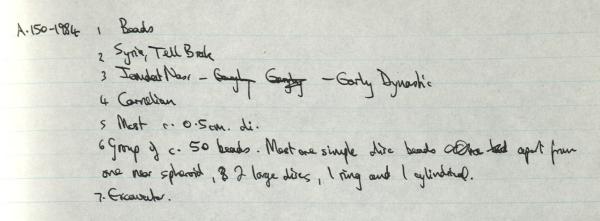 A.150-1984 1 Beads
2 Syria, Tell Brak
3 Jemdet Nasr - - Early Dynastic
4 Carnelian
5 Most c. 0.5cm. di.
6 Group of c. 50 beads. Most are simple disc beads apart from
one near spheroid, & 2 large discs, 1 ring and 1 cylindrical.
7. Excavator.